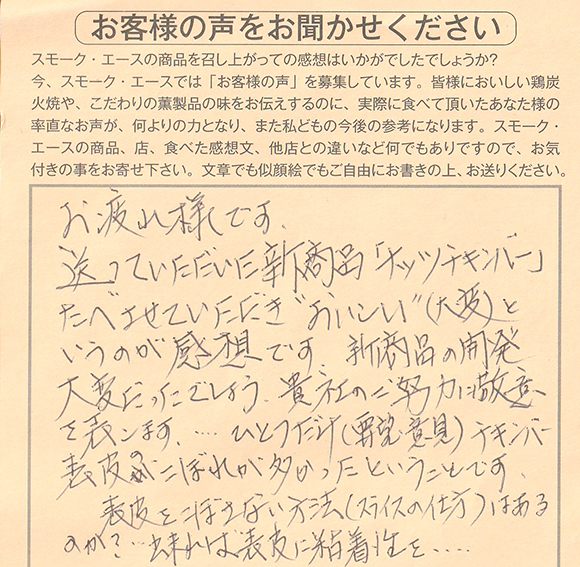 お客様の声をお聞かせください
スモーク・エースの商品を召し上がっての感想はいかがでしたでしょうか?
今、スモーク・エースでは「お客様の声」を募集しています。皆様においしい鶏炭
火焼や、こだわりの薫製品の味をお伝えするのに、実際に食べて頂いたあなた様の
率直なお声が、何よりの力となり、また私どもの今後の参考になります。スモーク・
エースの商品、店、食べた感想文、他店との違いなど何でもありですので、お気
付きの事をお寄せ下さい。文章でも似顔絵でもご自由にお書きの上、お送りください。
お疲れ様です.
送っていただいた新商品「ナッツチキンバー」
たべさせていただき"おいしい"(大変)と
いうのが感想です. 新商品の開発
大変だったでしょう. 貴社のご努力に敬意
を表します. … ひとつだけ(要望・意見)チキンバー
表皮のこぼれが多かったということです.
表皮をこぼさない方法(スライスの仕方)はある
のか? … 出来れば表皮に粘着性を……